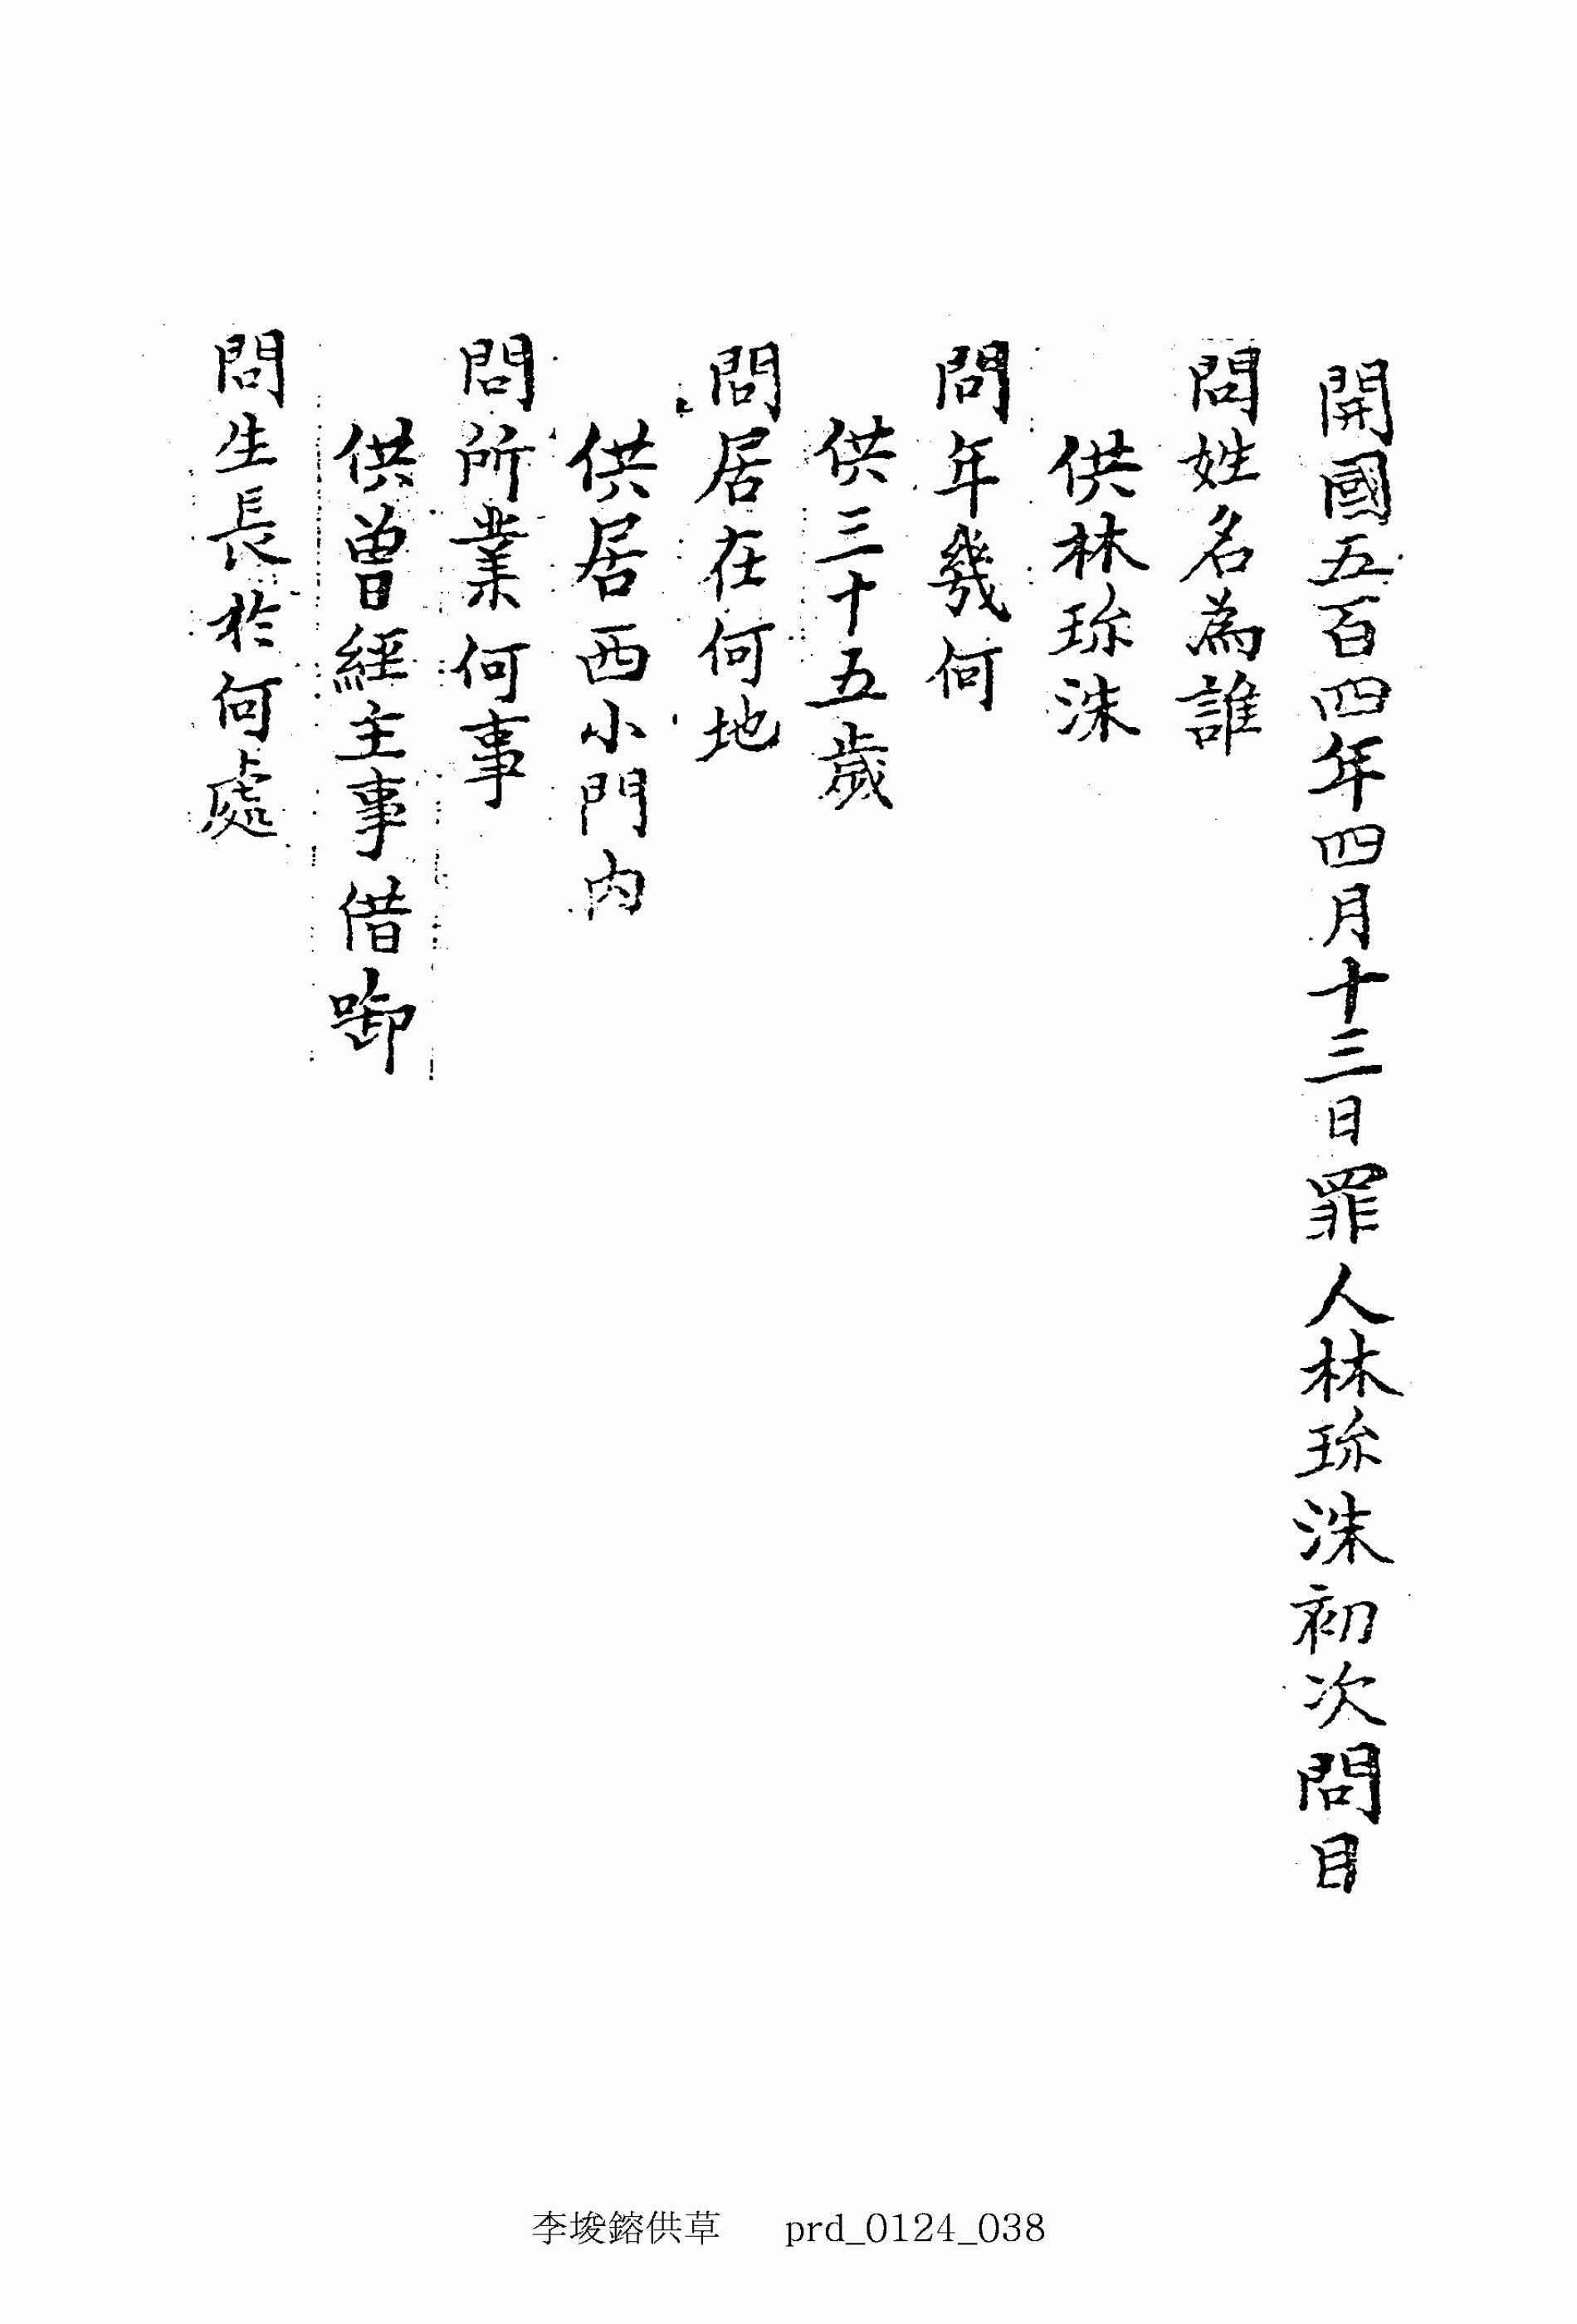 開國五百四年四月十三日罪人林珎洙初次問目
問姓名為誰
供林珎洙
問年幾何
供三十五歲
問居在何地
供居西小門內
問所業何事
供曾經主事借啣
問生長於何處
李埈鎔供草 prd_0124_038